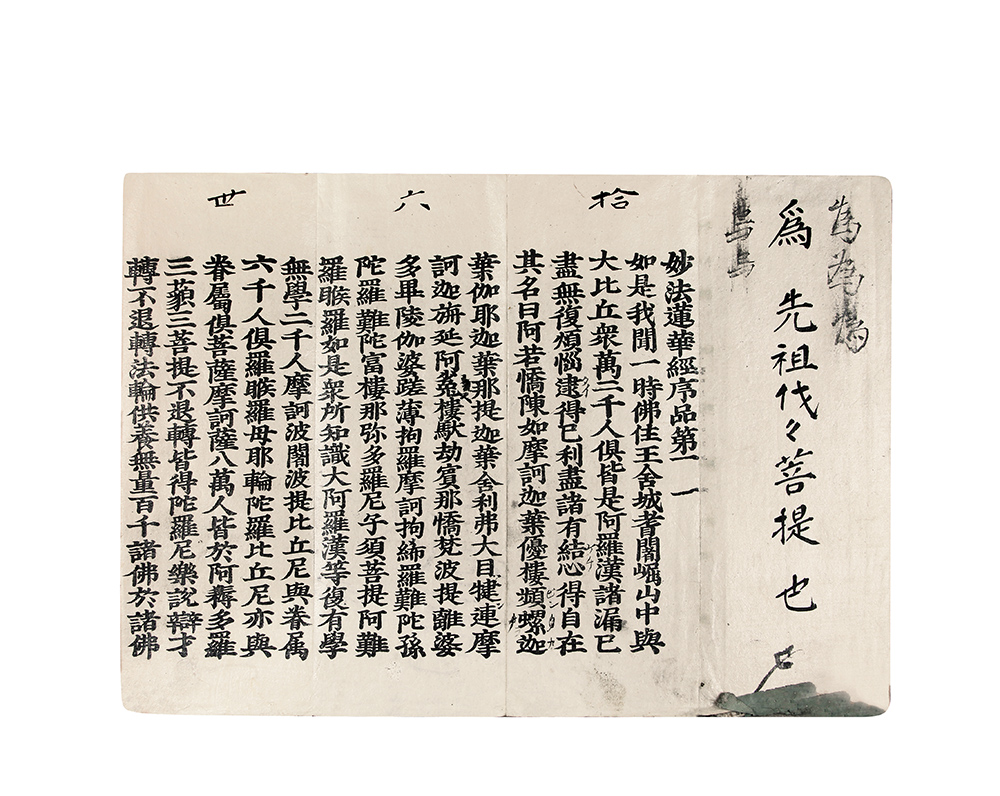 為　先祖代々菩提也
為為為
為為
拾
六
世
妙法蓮華經序品第一　一
如是我聞一時佛住王舍城耆闍崛山中與
大比丘衆萬二千人俱皆是阿羅漢諸漏已
盡無復煩惱逮得已利盡諸有結心得自在
其名曰阿若憍陳如摩訶迦葉優樓頻螺迦
葉伽耶迦葉那提迦葉舍利弗大目揵連摩
訶迦旃延阿㝹樓馱劫賓那憍梵波提離婆
多畢陵伽婆蹉薄拘羅摩訶拘絺羅難陀孫
陀羅難陀富樓那弥多羅尼子須菩提阿難
羅睺羅如是衆所知識大阿羅漢等復有學
無學二千人摩訶波闍波提比丘尼與眷属
六千人俱羅睺羅母耶輸陀羅比丘尼亦與
眷屬俱菩薩摩訶薩八萬人皆於阿耨多羅
三藐三菩提不退轉皆得陀羅尼樂說辯才
轉不退轉法輪供養無量百千諸佛於諸佛